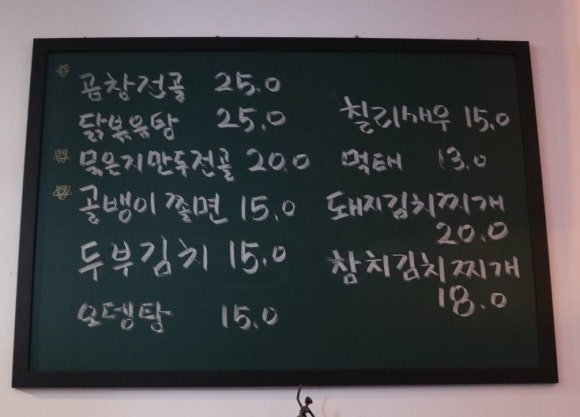 곱창전골 25.0
닭볶음탕 25.0
묵은지만두전골 20.0
골뱅이 쫄면 15.0
두부김치 15.0
오뎅탕 15.0
칠리새우 15.0
먹태 13.0
돼지김치찌개
20.0
참치김치찌개
18.0